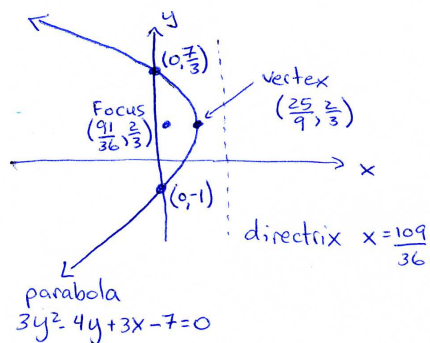 y
(0, 7/3)
vertex
(25/9, 2/3)
Focus
(91/36, 2/3)
x
(0, -1)
directrix x = 109/36
parabola
3y² - 4y + 3x - 7 = 0